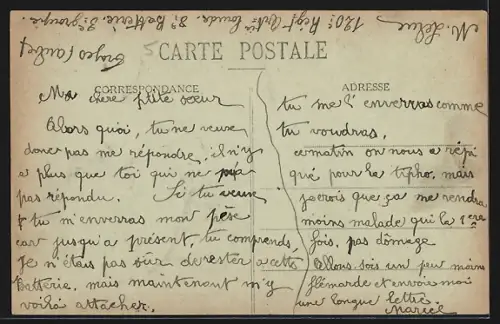 M. Leduc
120e Régt Artie Lourde. 8e Batterie. 3e groupe.
Troyes (Aube)
CARTE POSTALE
CORRESPONDANCE
ADRESSE
Ma chère p'tite soeur
Alors quoi, tu ne veux
donc pas me répondre, il n'y
a plus que toi qui ne m'a
pas répondu. Si tu veux
tu m'enverras mon pèse
car jusqu'a présent, tu comprends,
je n'étais pas sûr de rester a cette
Batterie, mais maintenant m'y
voilà attacher.
tu me l'enverras comme
tu voudras.
ce matin on nous a répi
qué pour la tipho, mais
je crois que ça me rendra
moins malade que la 1ère
fois, pas dômage
Allons sois un peu moins
flémarde et envoie moi
une longue lettre.
Marcel